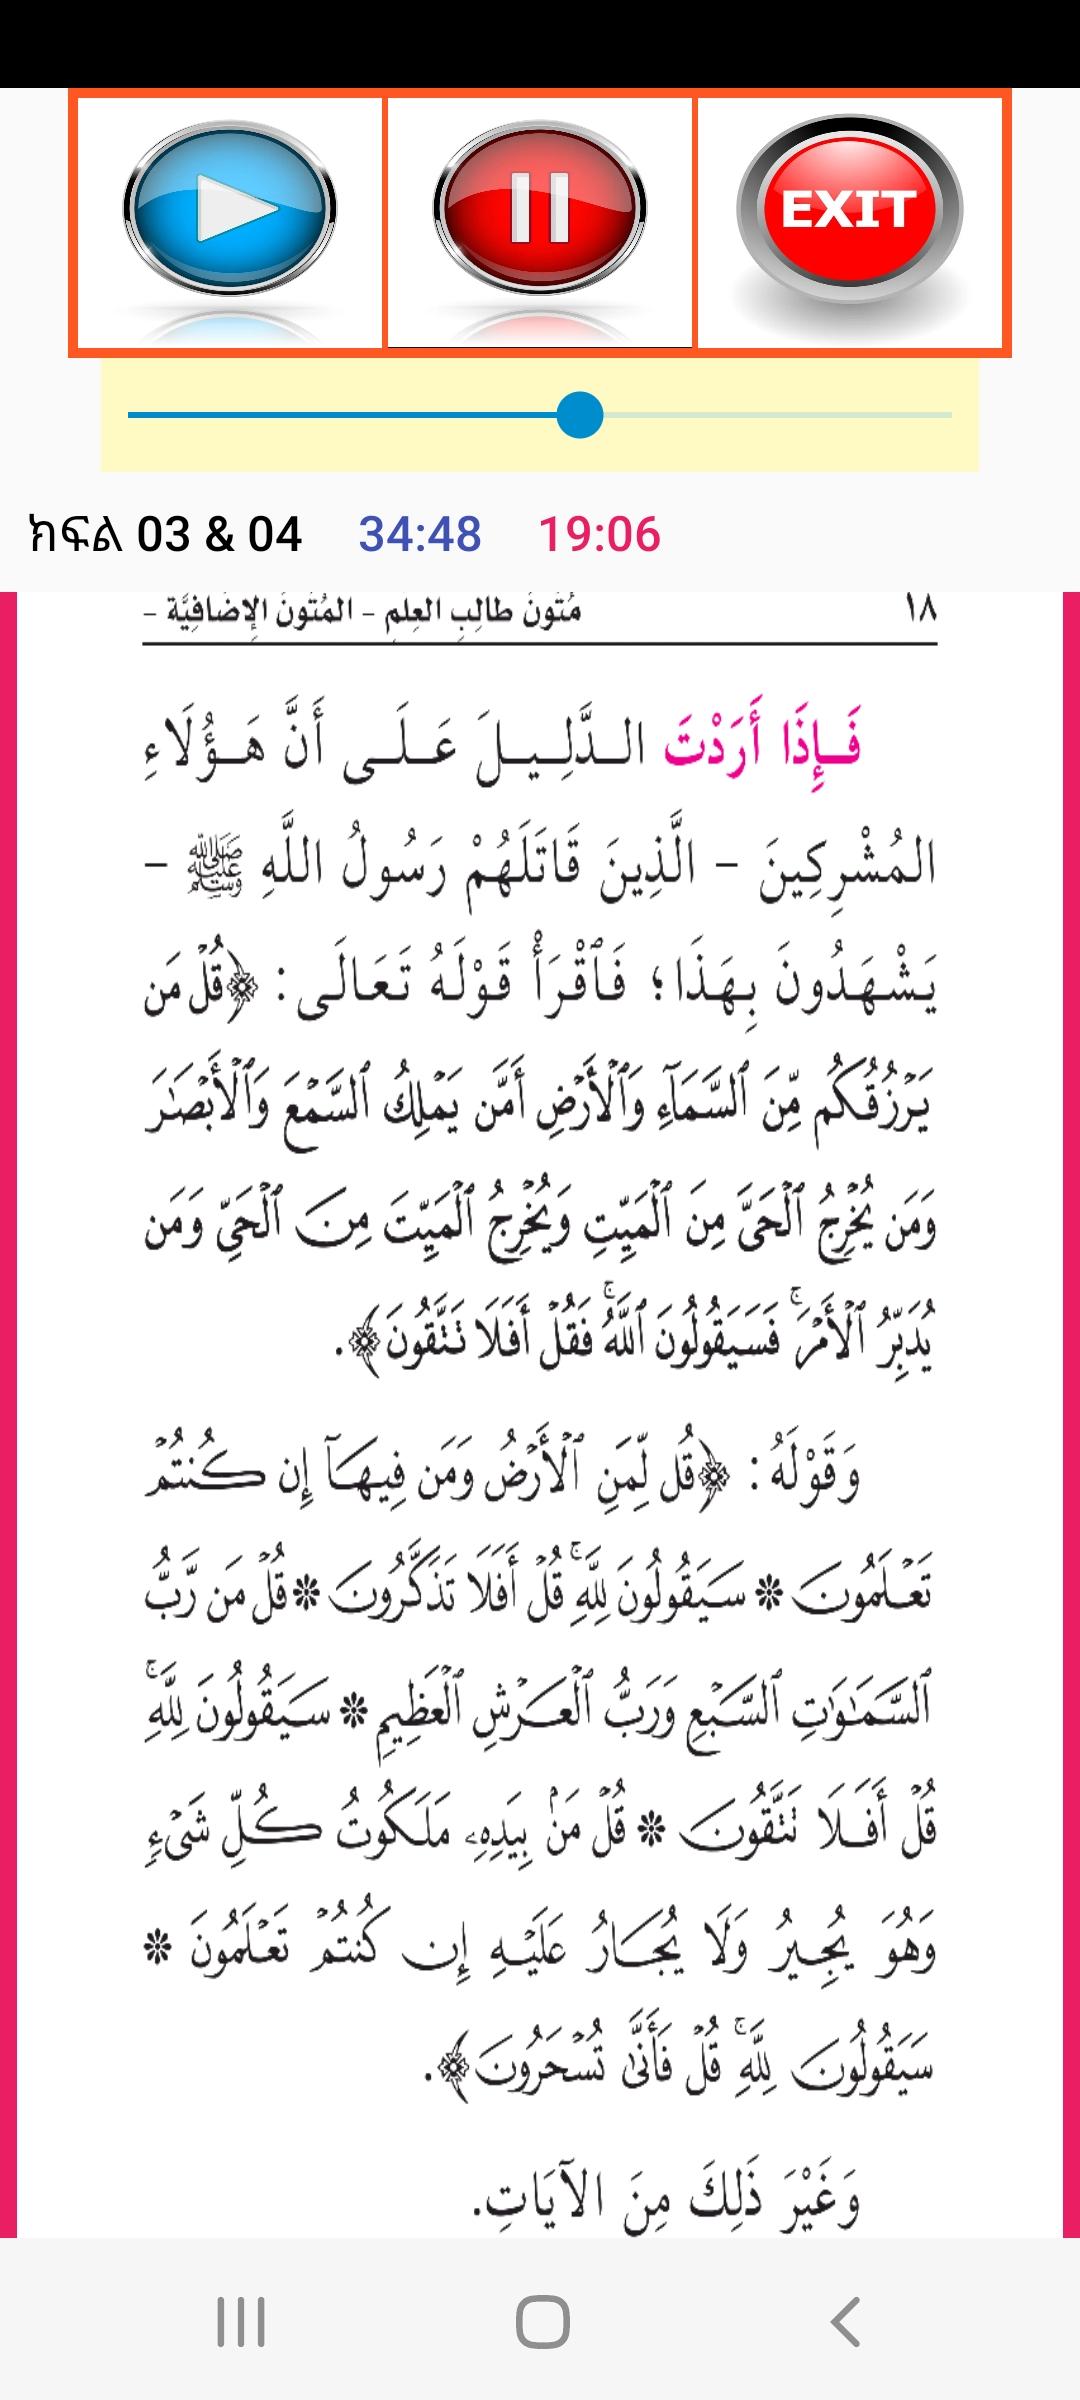 EXIT
ክፍል 03 & 04 34:48 19:06
مُتُونُ طَالِبِ العِلْمِ - المُتُونُ الإِضَافِيَّة - ١٨
فَإِذَا أَرَدْتَ الدَّلِيلَ عَلَى أَنَّ هَؤُلَاءِ
المُشْرِكِينَ - الَّذِينَ قَاتَلَهُمْ رَسُولُ اللَّهِ ﷺ -
يَشْهَدُونَ بِهَذَا؛ فَٱقْرَأْ قَوْلَهُ تَعَالَى: ﴿قُلْ مَن
يَرْزُقُكُم مِّنَ ٱلسَّمَآءِ وَٱلْأَرْضِ أَمَّن يَمْلِكُ ٱلسَّمْعَ وَٱلْأَبْصَٰرَ
وَمَن يُخْرِجُ ٱلْحَىَّ مِنَ ٱلْمَيِّتِ وَيُخْرِجُ ٱلْمَيِّتَ مِنَ ٱلْحَىِّ وَمَن
يُدَبِّرُ ٱلْأَمْرَۚ فَسَيَقُولُونَ ٱللَّهُۚ فَقُلْ أَفَلَا تَتَّقُونَ﴾.
وَقَوْلَهُ: ﴿قُل لِّمَنِ ٱلْأَرْضُ وَمَن فِيهَآ إِن كُنتُمْ
تَعْلَمُونَ * سَيَقُولُونَ لِلَّهِۚ قُلْ أَفَلَا تَذَكَّرُونَ * قُلْ مَن رَّبُّ
ٱلسَّمَٰوَٰتِ ٱلسَّبْعِ وَرَبُّ ٱلْعَرْشِ ٱلْعَظِيمِ * سَيَقُولُونَ لِلَّهِۚ
قُلْ أَفَلَا تَتَّقُونَ * قُلْ مَنۢ بِيَدِهِۦ مَلَكُوتُ كُلِّ شَىْءٍ
وَهُوَ يُجِيرُ وَلَا يُجَارُ عَلَيْهِ إِن كُنتُمْ تَعْلَمُونَ *
سَيَقُولُونَ لِلَّهِۚ قُلْ فَأَنَّىٰ تُسْحَرُونَ﴾.
وَغَيْرَ ذَلِكَ مِنَ الآيَاتِ.